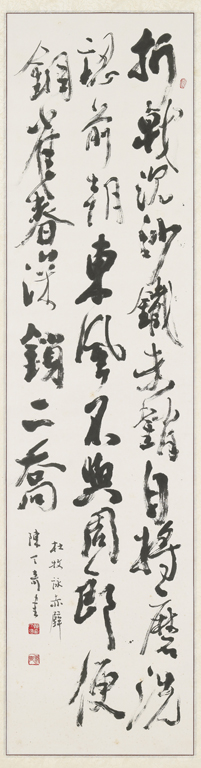 折戟沉沙鐵未銷自將磨洗
認前朝東風不與周郎便
銅雀春深鎖二喬
杜牧詠赤壁
陳丁奇